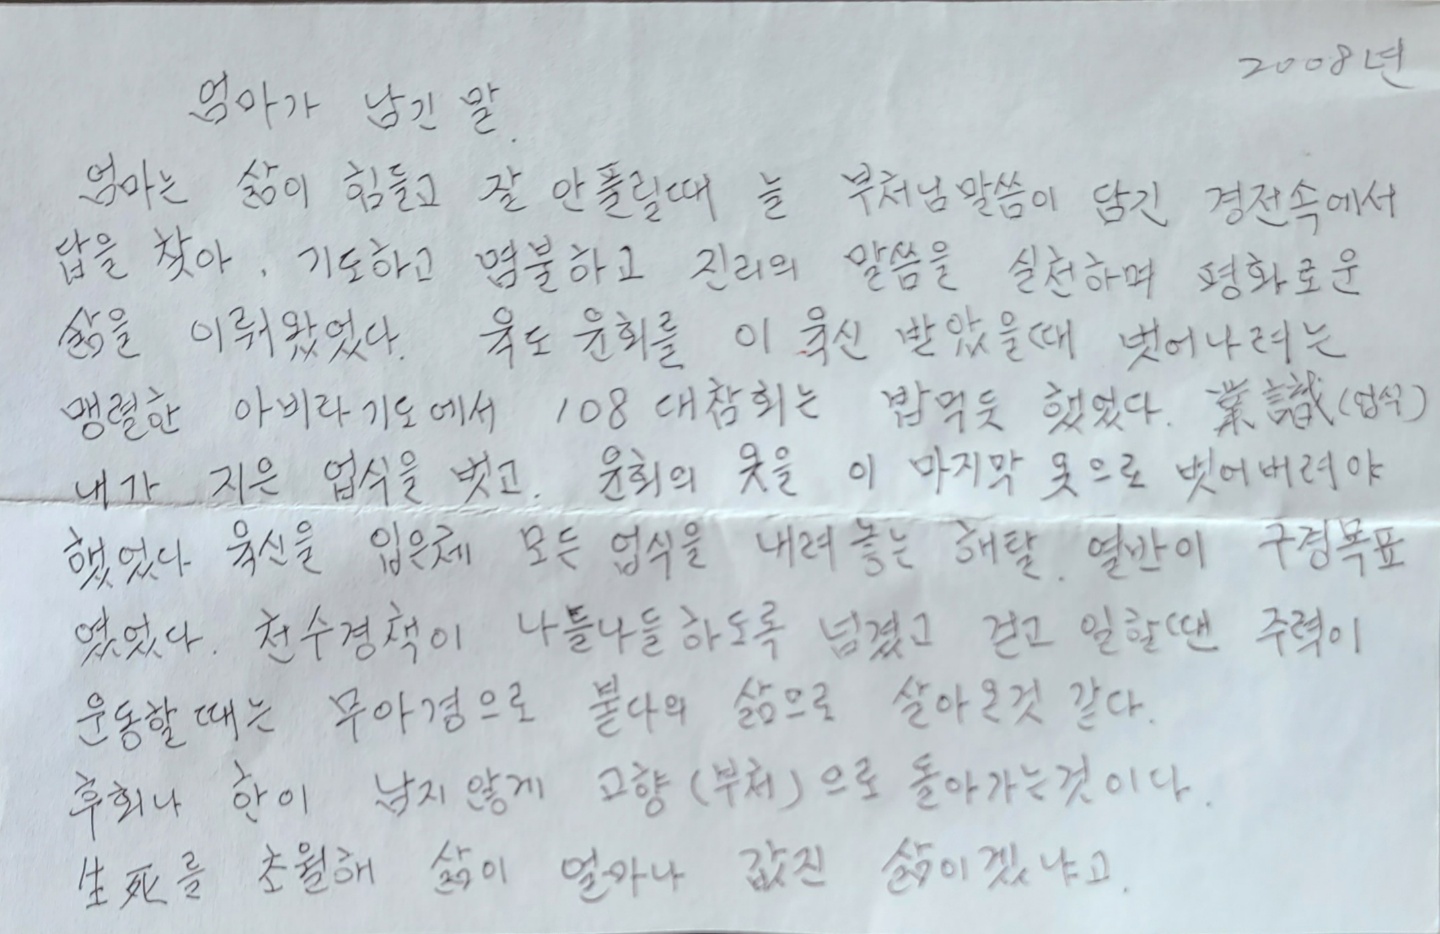 2008년
엄마가 남긴 말.
엄마는 삶이 힘들고 잘 안풀릴때 늘 부처님말씀이 담긴 경전속에서
답을 찾아, 기도하고 염불하고 진리의 말씀을 실천하며 평화로운
삶을 이뤄왔었다. 육도 윤회를 이 육신 받았을때 벗어나려는
맹렬한 아비라기도에서 108대참회는 밥먹듯 했었다. 業識(업식)
내가 지은 업식을 벗고, 윤회의 옷을 이 마지막 옷으로 벗어버려야
했었다 육신을 입은체 모든 업식을 내려놓는 해탈, 열반이 구경목표
였었다. 천수경책이 나들나들하도록 넘겼고 걷고 일할땐 주력이
운동할때는 무아경으로 붇다의 삶으로 살아온것 같다.
후회나 한이 남지않게 고향(부처)으로 돌아가는것이다.
生死를 초월해 삶이 얼마나 값진 삶이겠냐고.